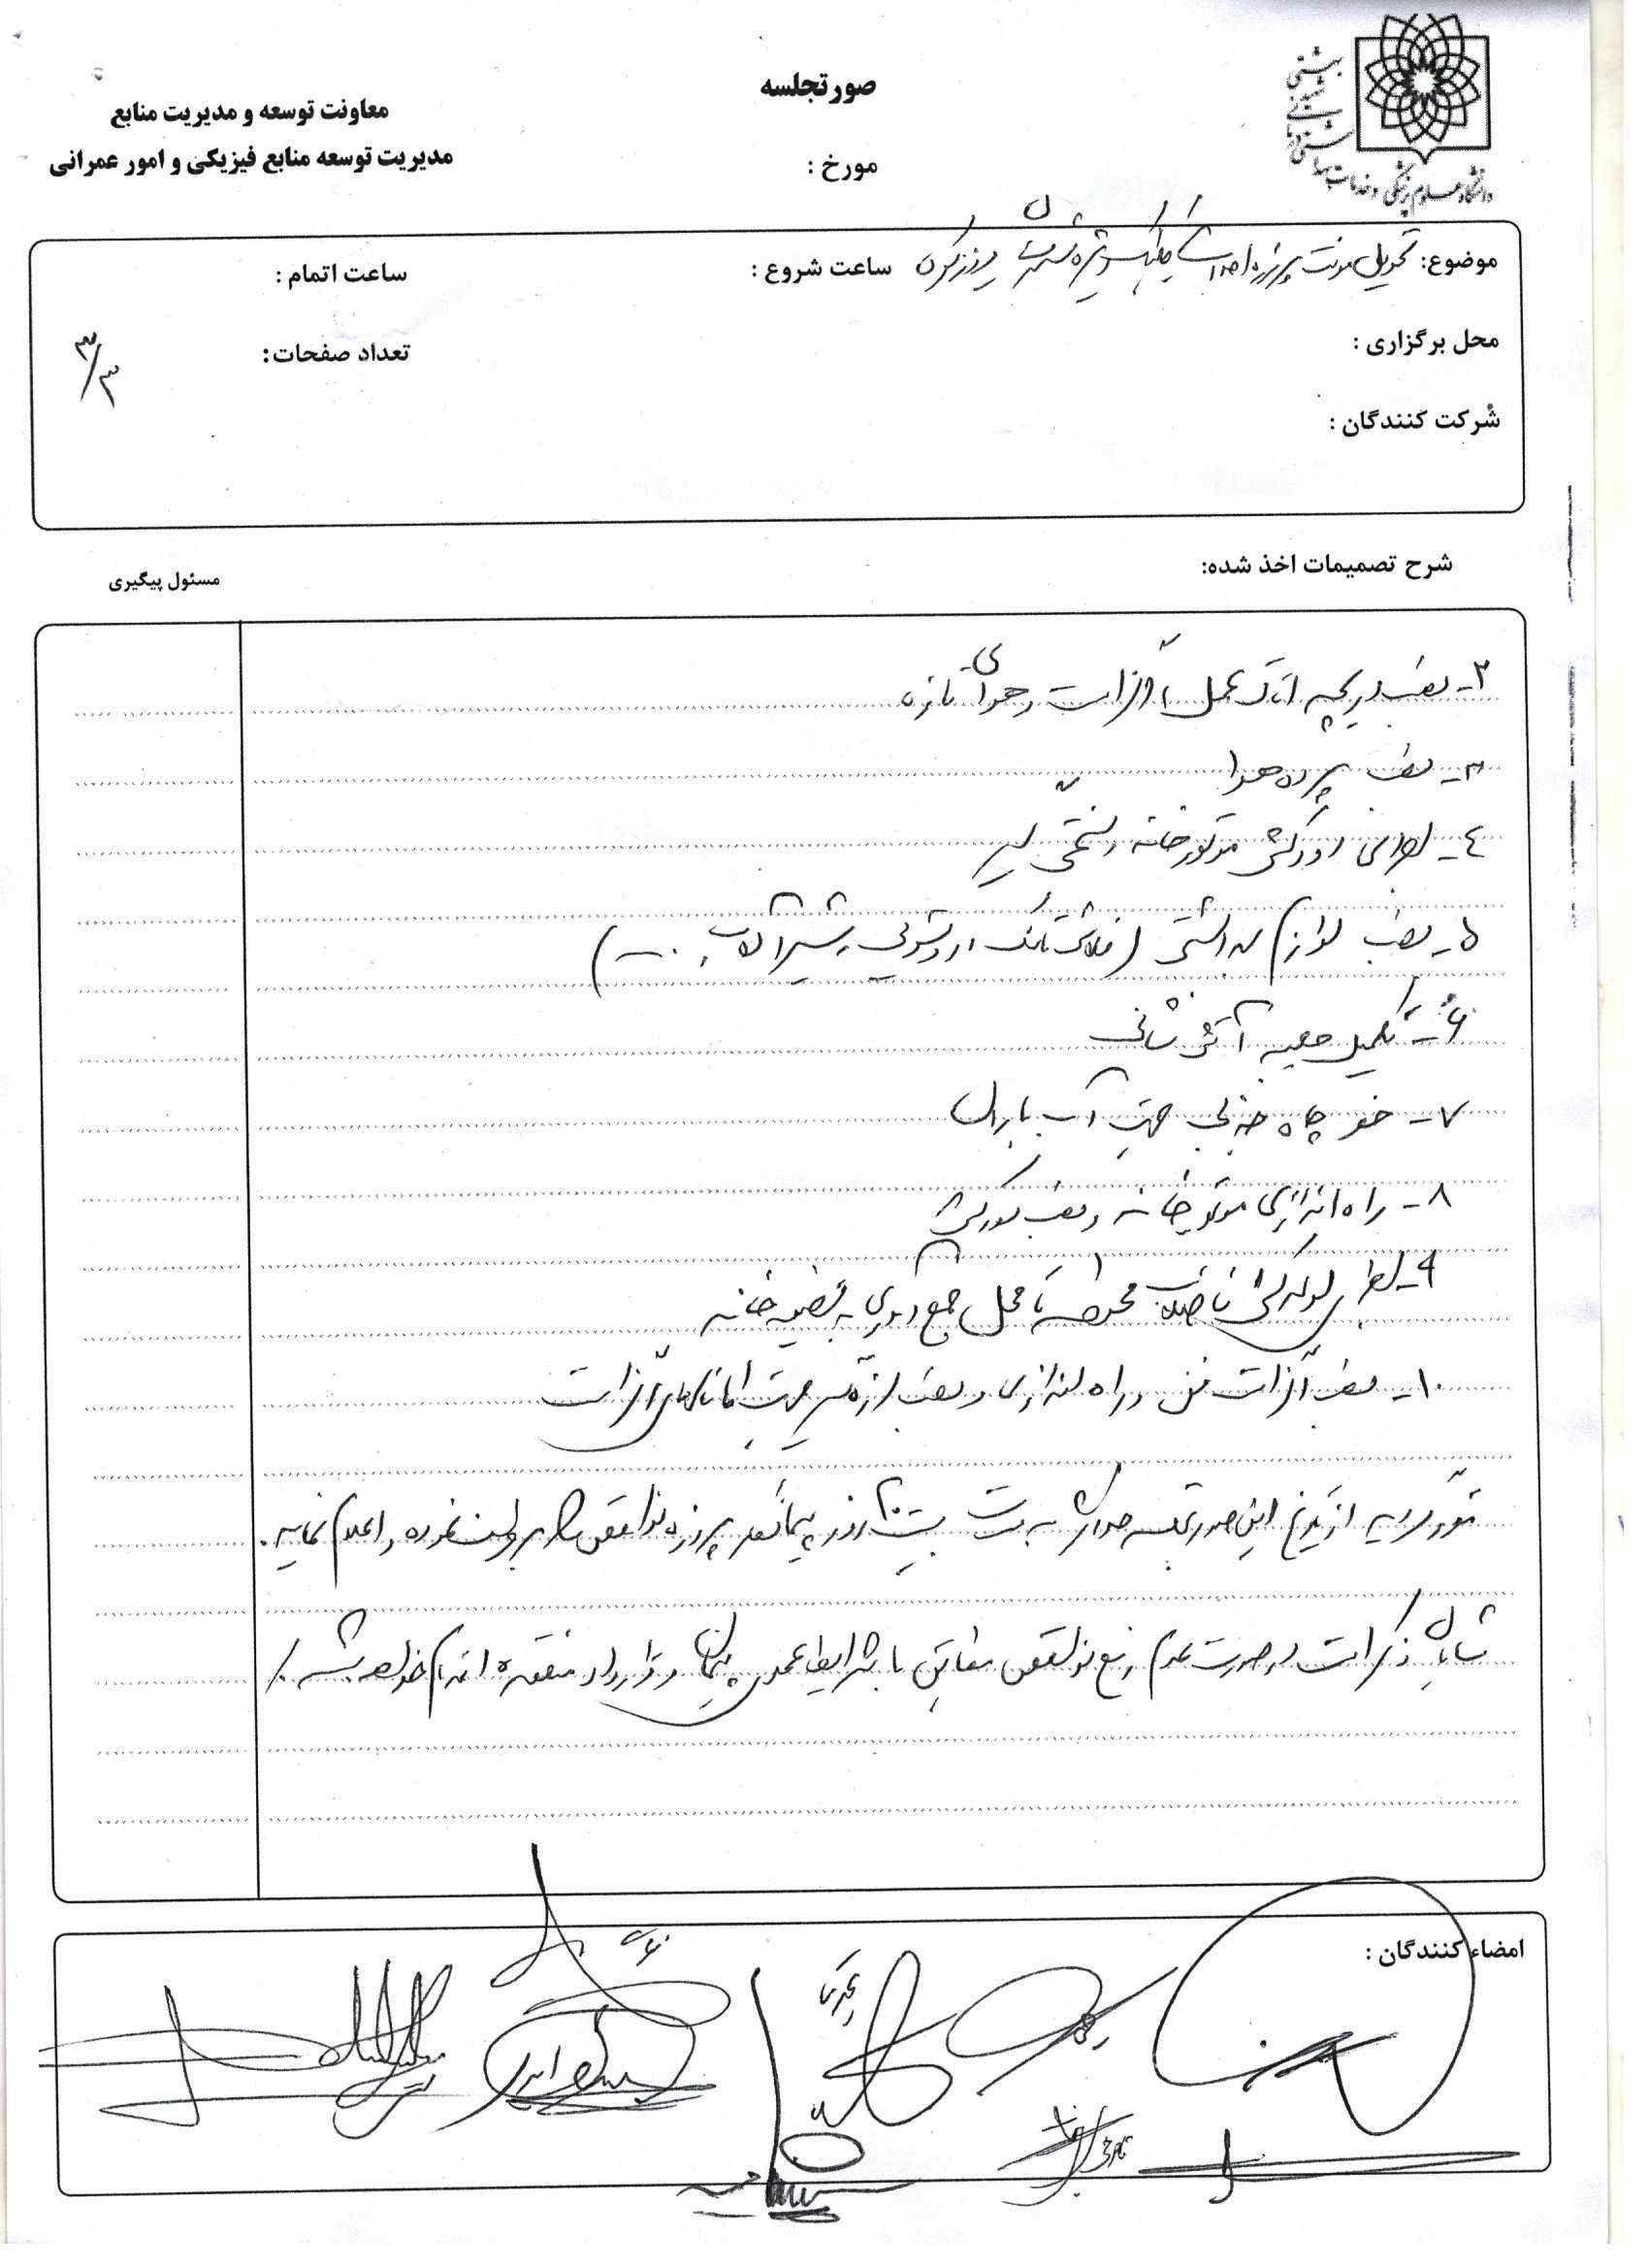 دانشگاه علوم پزشکی و خدمات بهداشتی درمانی شهید بهشتی
صورتجلسه
مورخ :
معاونت توسعه و مدیریت منابع
مدیریت توسعه منابع فیزیکی و امور عمرانی
موضوع: تحویل موقت پروژه احداث
ساعت شروع :
ساعت اتمام :
محل برگزاری :
تعداد صفحات:
۳/۳
شرکت کنندگان :
شرح تصمیمات اخذ شده:
مسئول پیگیری
۲- نصب دریچه اتاق عمل، اگزاست و هوای تازه
۳- نصب پرده هوا
٤- اجرای موتورخانه و سختی گیر
۵- نصب لوازم بهداشتی (فلاش تانک، روشویی، شیرآلات و ...)
۶- تکمیل جعبه آتش نشانی
۷- حفر چاه جذبی جهت آب باران
۸- راه اندازی موتورخانه و نصب دودکش
۹- اجرای لوله کشی فاضلاب محوطه تا محل جمع آوری به تصفیه خانه
۱۰- نصب اگزاست فن و راه اندازی و نصب جهت کانالهای اگزاست
مقرر گردید از تاریخ این صورتجلسه حداکثر به مدت بیست ۲۰ روز پیمانکار پروژه نواقص را برطرف نموده و اعلام نماید.
شایان ذکر است در صورت عدم رفع نواقص مطابق با شرایط عمومی پیمان و قرارداد منعقده اقدام خواهد شد./
امضاء کنندگان :